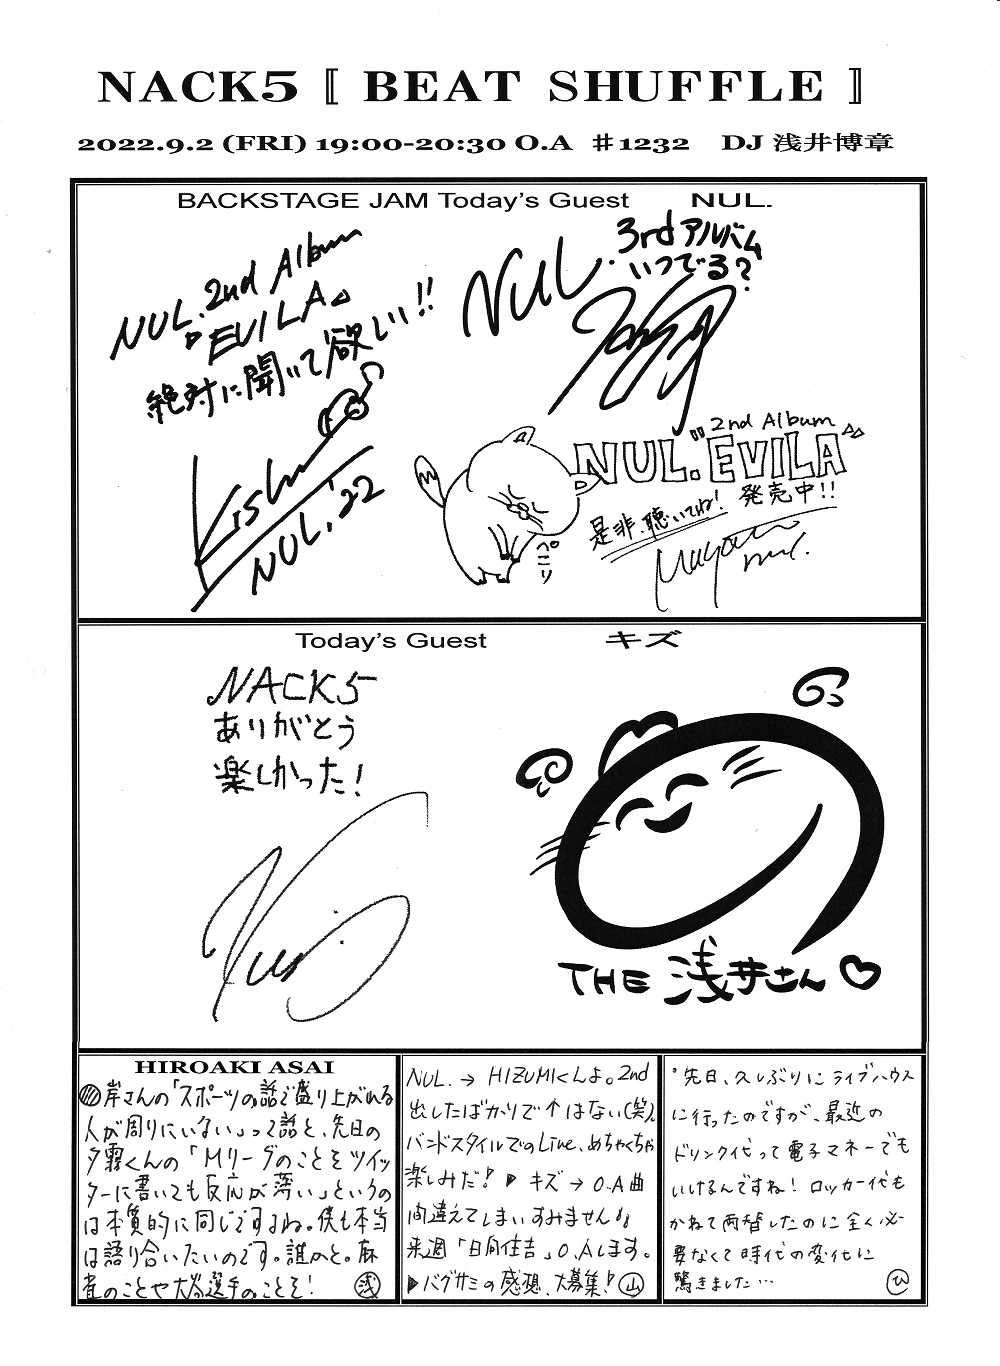 NACK5 〚 BEAT SHUFFLE 〛
2022.9.2 (FRI) 19:00-20:30 O.A #1232 DJ 浅井博章
BACKSTAGE JAM Today's Guest NUL.
NUL. 2nd Album
『EVILA』
絶対に聞いて欲しい!!
Kishi
NUL.'22
NUL.
3rdアルバム
いつでる?
2nd Album
NUL. "EVILA"
発売中!!
是非、聴いてね!
ペこり
Masato
nul.
Today's Guest キズ
NACK5
ありがとう
楽しかった!
THE 浅井さん♡
HIROAKI ASAI
岸さんの「スポーツの話で盛り上がれる
人が周りにいない」って話と、先日の
夕霧くんの「Mリーグのことをツイッ
ターに書いても反応が薄い」というの
は本質的に同じですよね。僕も本当
は語り合いたいのです。誰かと。麻
雀のことや大谷選手のことを! 浅
NUL. → HIZUMIくんよ。2nd
出したばかりで↑はない(笑)。
バンドスタイルでのLive、めちゃくちゃ
楽しみだ! ▶ キズ → O.A曲
間違えてしまいすみません。
来週「日向住吉」O.Aします。
▶バグサミの感想、大募集! 山
・先日、久しぶりにライブハウス
に行ったのですが、最近の
ドリンク代って電子マネーでも
いけるんですね! ロッカー代も
かねて両替したのに全く必
要なくて時代の変化に
驚きました… ひ